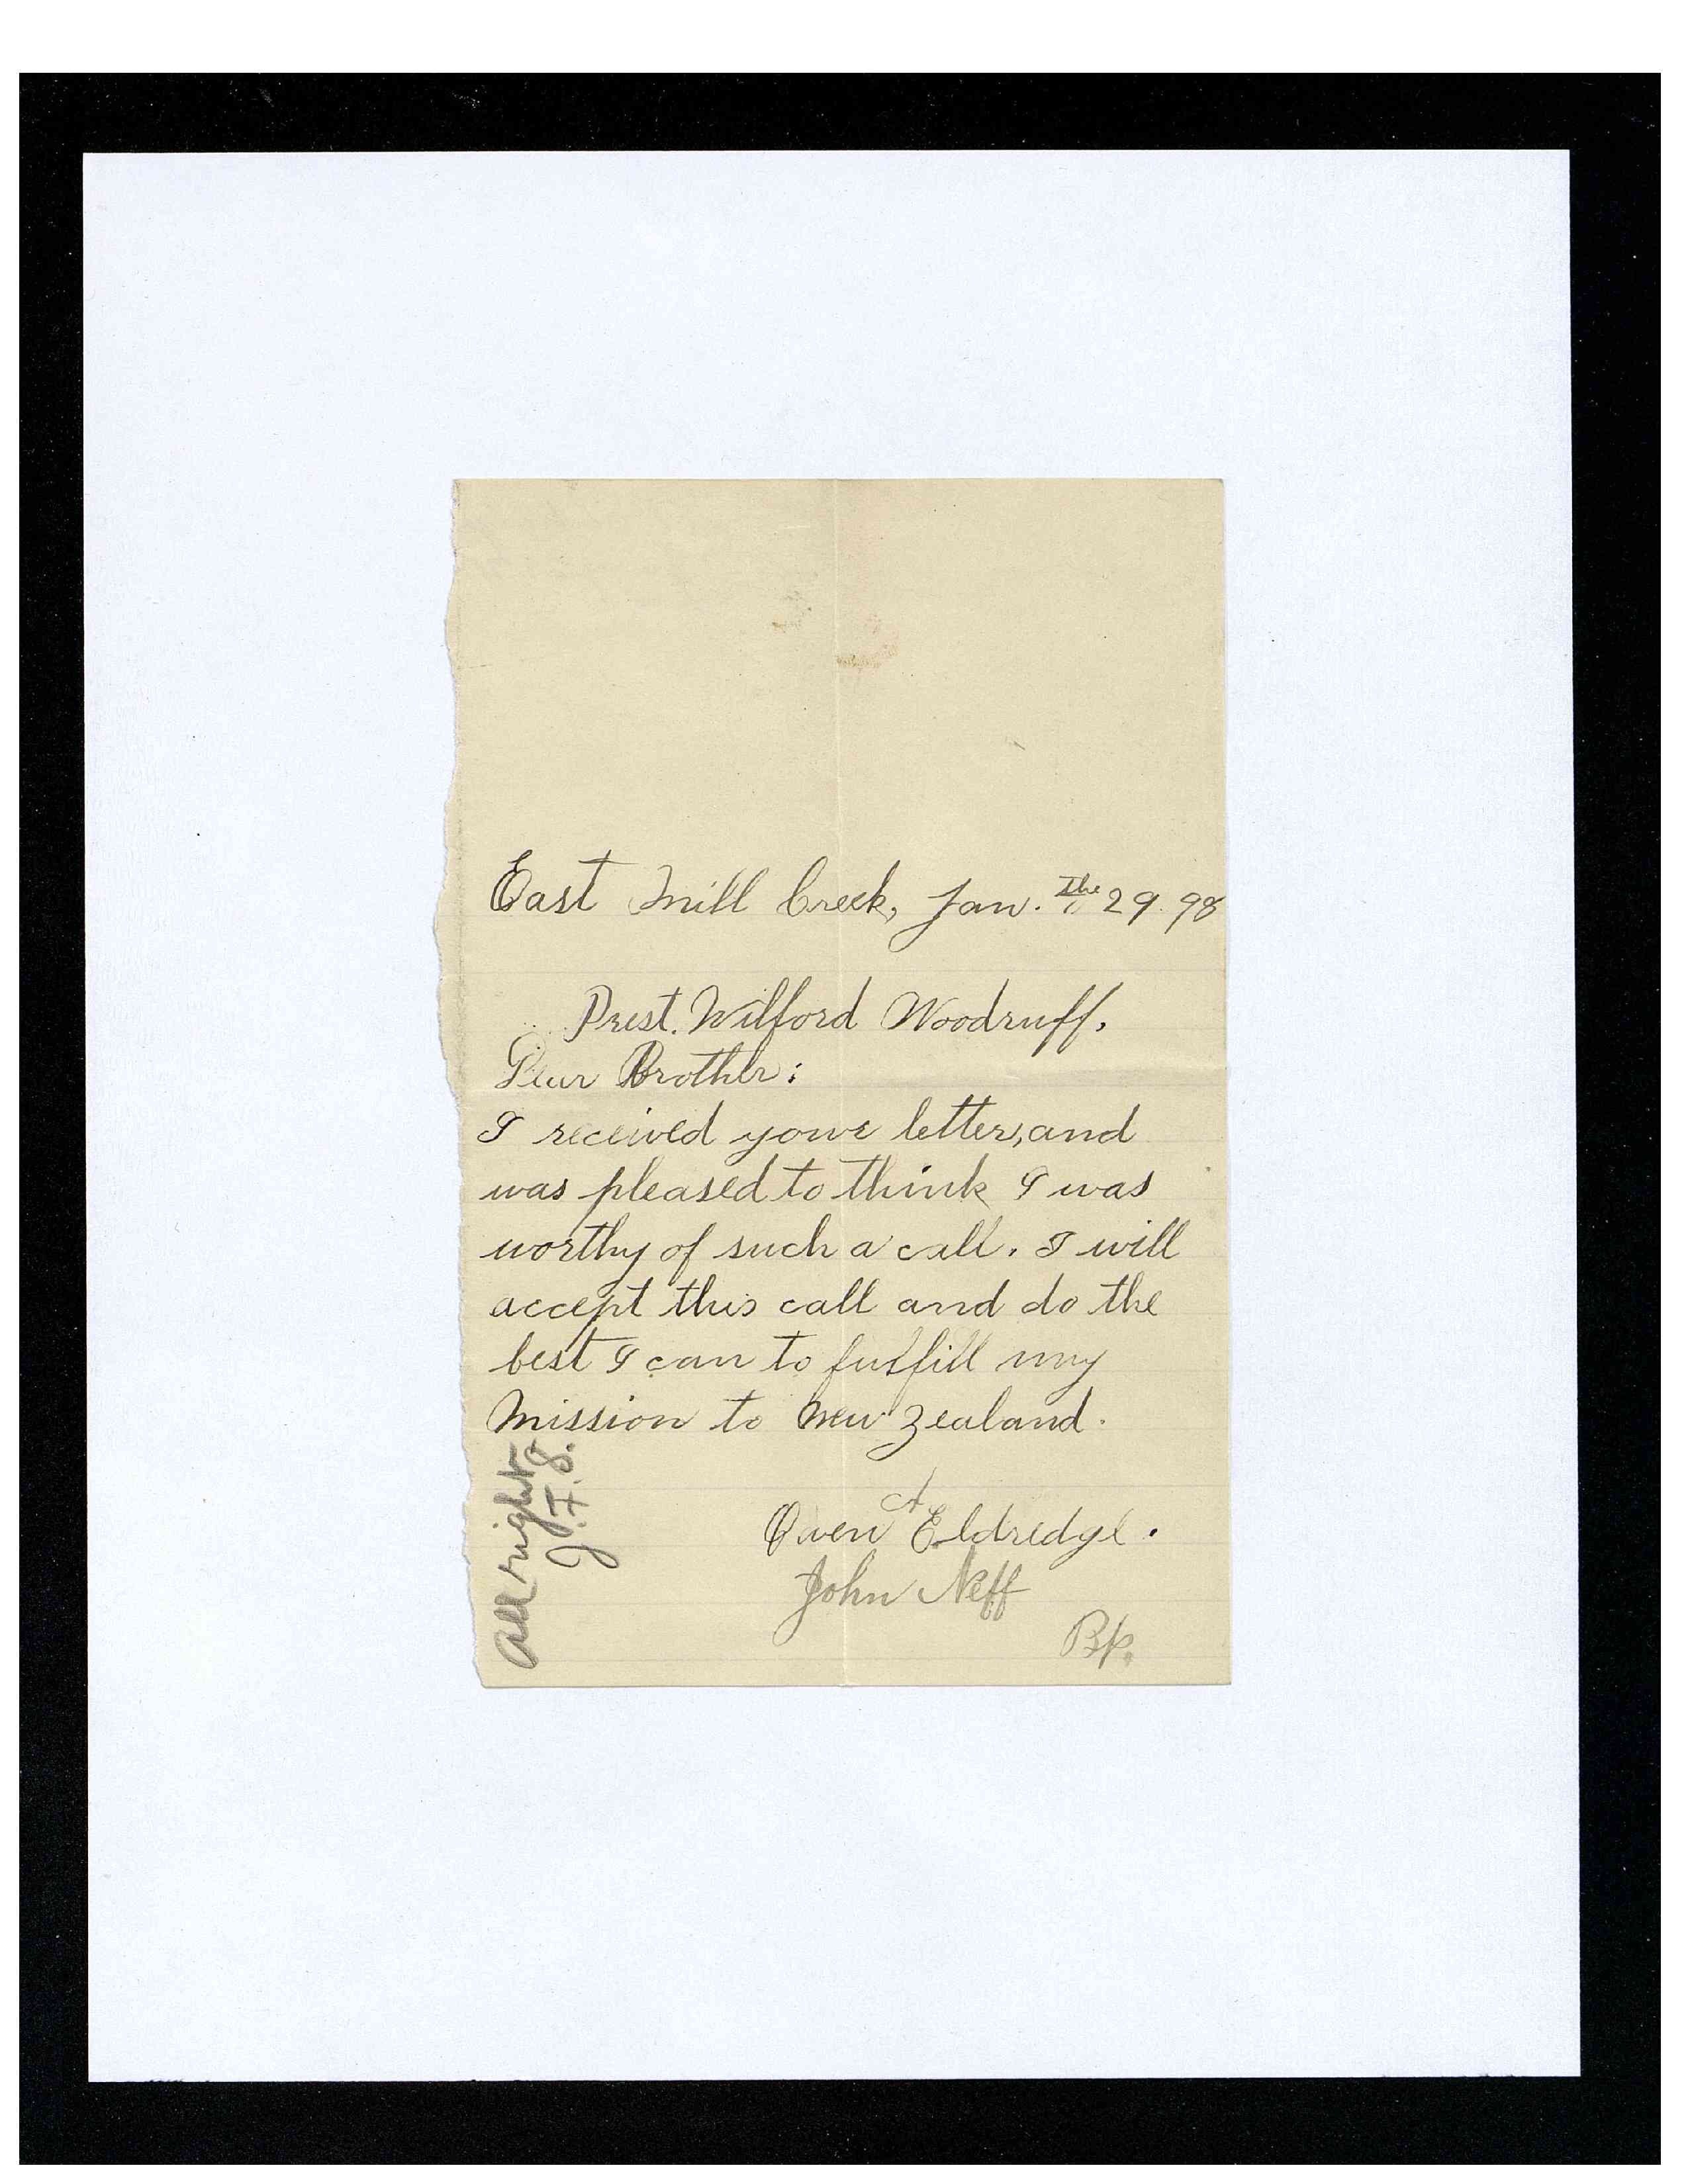 East Mill Creek, Jan. the 29 98
Prest. Wilford Woodruff,
Dear Brother:
I received your letter, and
was pleased to think I was
worthy of such a call. I will
accept this call and do the
best I can to fulfill my
Mission to New Zealand.
Owen A Eldredge.
John Neff
Bp.
All right
J. F. S.